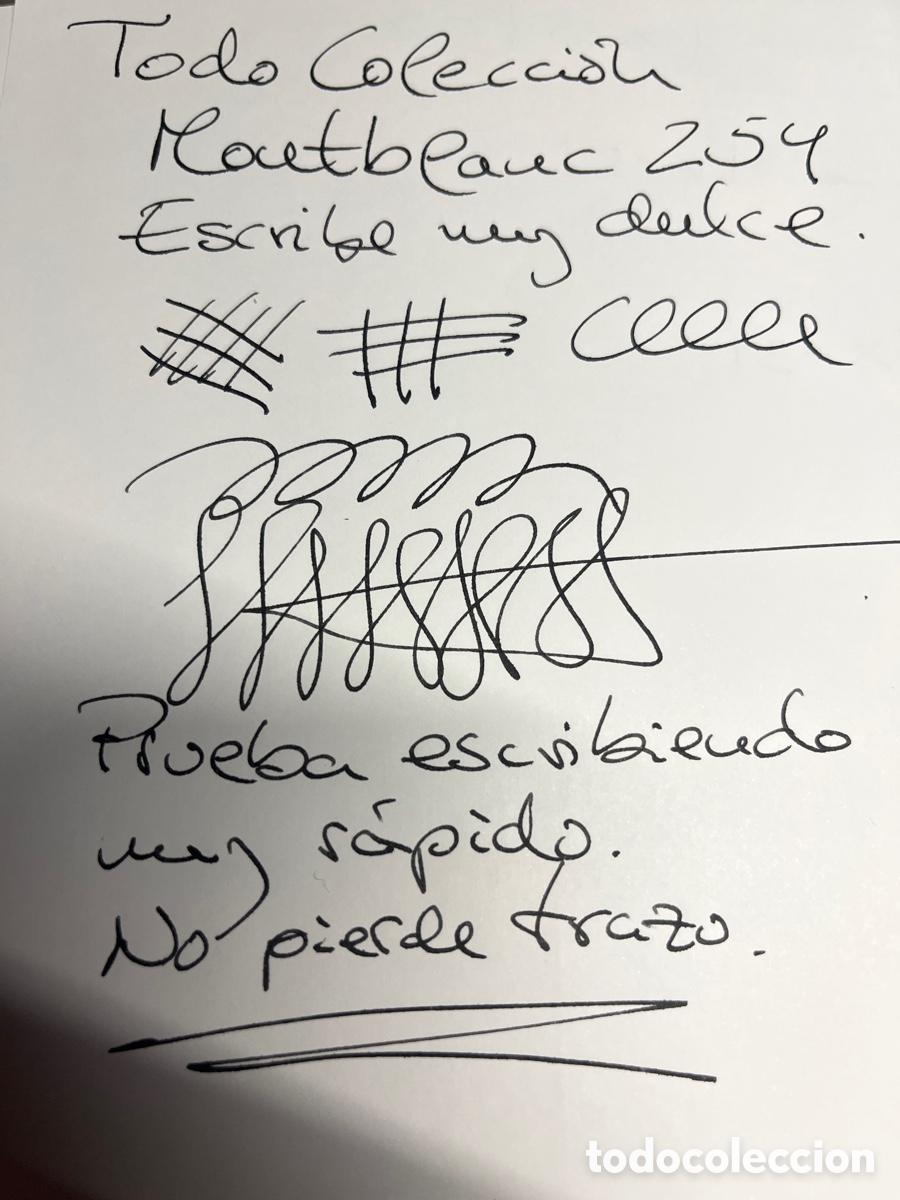 Todo Colección
Montblanc 254
Escribe muy dulce.
Prueba escribiendo
muy rápido.
No pierde trazo.
todocoleccion